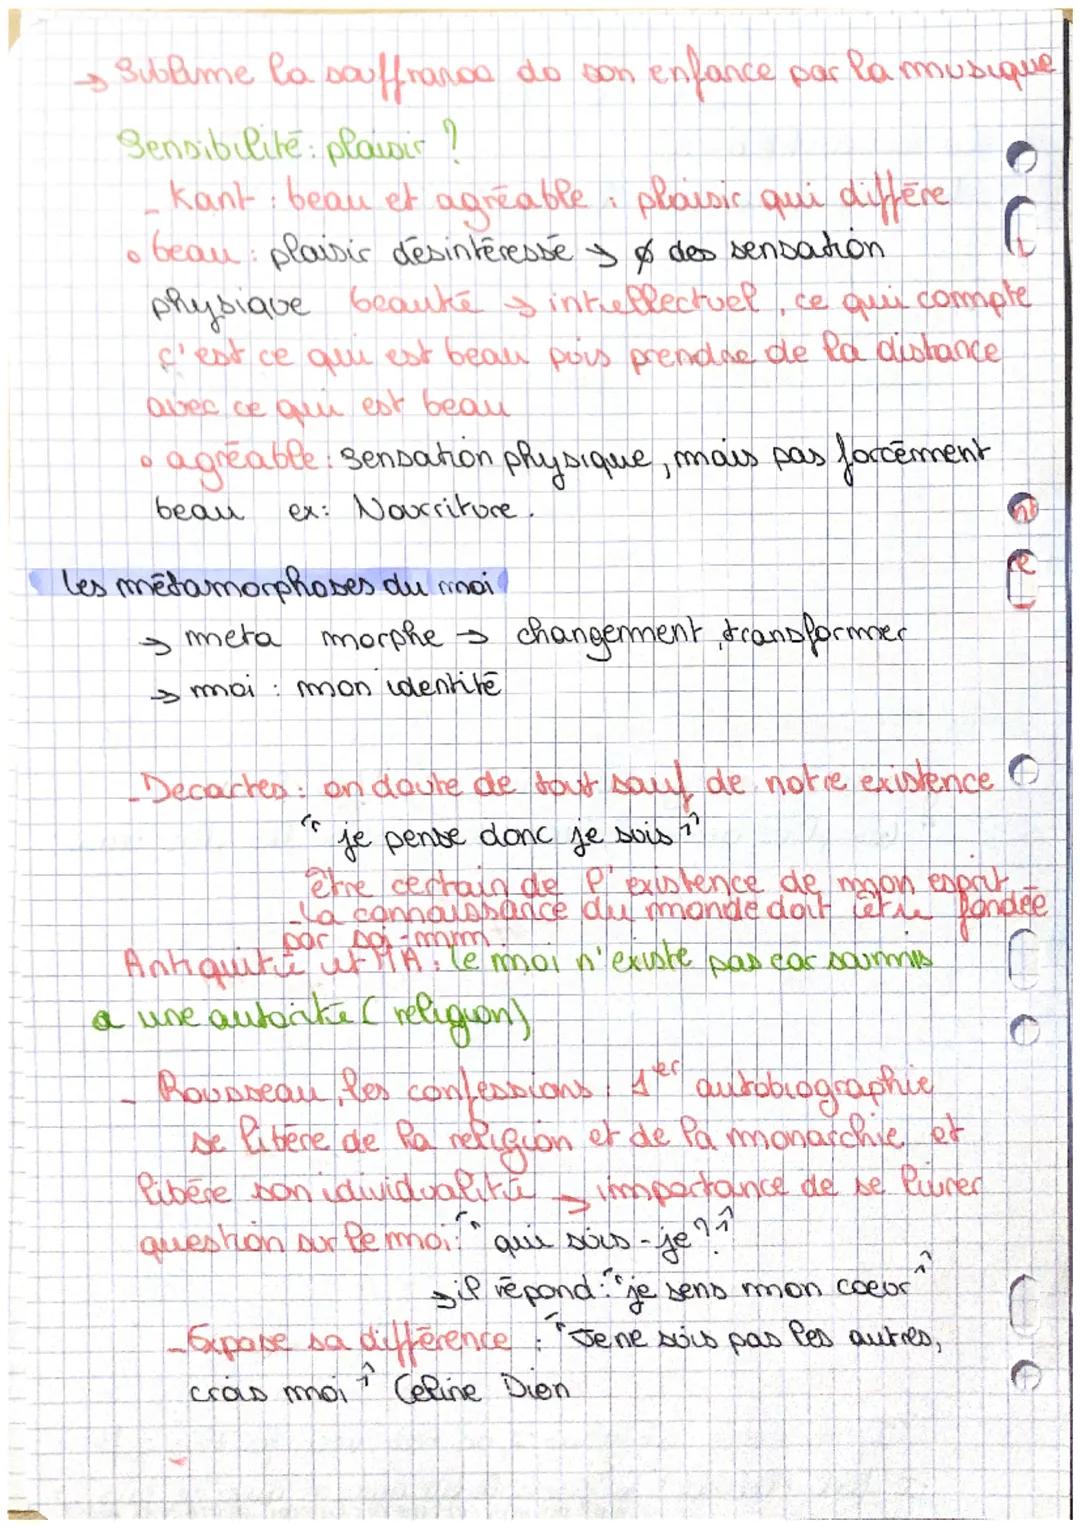 → Sublime la souffrance de son enfance par la musique
Sensibilité : plaisir ?
- Kant : beau et agréable : plaisir qui diffère
• beau : plaisir désintéressé → ∅ des sensation
physique beauté → intellectuel, ce qui compte
c'est ce qui est beau puis prendre de la distance
avec ce qui est beau
• agréable : sensation physique, mais pas forcément
beau ex: Nourriture.
les métamorphoses du moi
→ meta morphe → changement, transformer
→ moi : mon identité
- Decartes : on doute de tout sauf de notre existence
"je pense donc je suis"
être certain de l'existence de mon esprit
- la connaissance du monde doit être fondée
par soi-mm.
Antiquité et MA : le moi n'existe pas car soumis
a une autorité (religion)
- Rousseau, les confessions : 1er autobiographie
se libère de la religion et de la monarchie et
libère son idividualité → importance de se livrer
question sur le moi : "qui suis-je ?"
→ il répond : "je sens mon coeur"
- Expose sa différence : "Je ne suis pas les autres,
crois moi" Céline Dion
nt
e